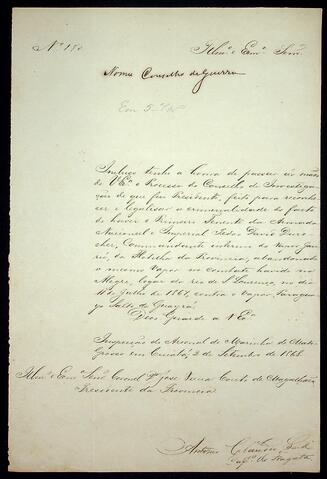 Nº 180
Illmº e Exmº Senr.
Nomea Conselho de Guerra
Em 5
Incluso tenho a honra de passar ás mãos
de V.Exª o Processo do Conselho de Investiga-
ção de que fui Presidente, feito para reconhe-
cer e legalisar a criminalidade do facto
de haver o Primeiro Tenente da Armada
Nacional e Imperial Pedro David Duro-
cher, Commandante interino do Vapor Jau-
rú, da Flotilha da Provincia, abandonado
o mesmo Vapor no combate havido no
Alegre, lugar do rio de S. Lourenço, no dia
11 de Julho de 1867, contra o Vapor Paraguay
o Salto de Guayra.
Deos Guarde a V.Exª
Inspecção do Arsenal de Marinha de Mato
Grosso em Cuiabá, 2 de Setembro de 1868.
Illmº e Exmº Senr. Coronel Dr. José Vieira Couto de Magalhães
Presidente da Provincia.
Antonio Claudio
Capm. de Fragata